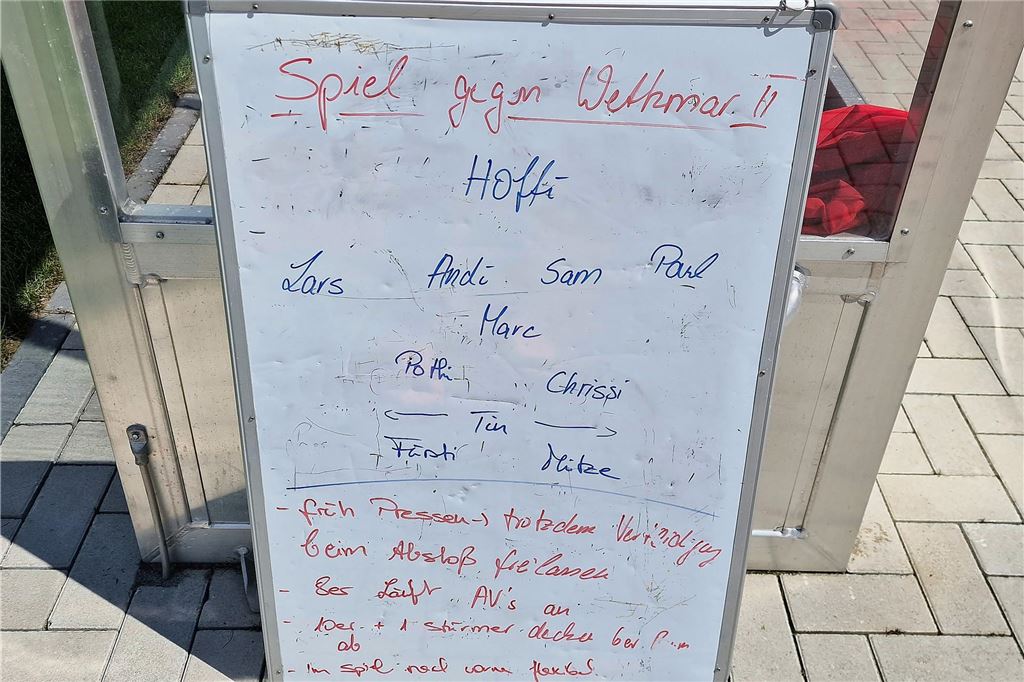 Spiel gegen Wettmar II
Hoffi
Lars Andi Sam Paul
Marc
Pothi Chrissi
← Tim →
Fürsti Mütze
- früh Pressen → trotzdem Verteidigung
beim Abstoß freilassen
- 8er läuft AV's an
- 10er + 1 Stürmer decken
ab
- im Spiel nach vorne flexibel